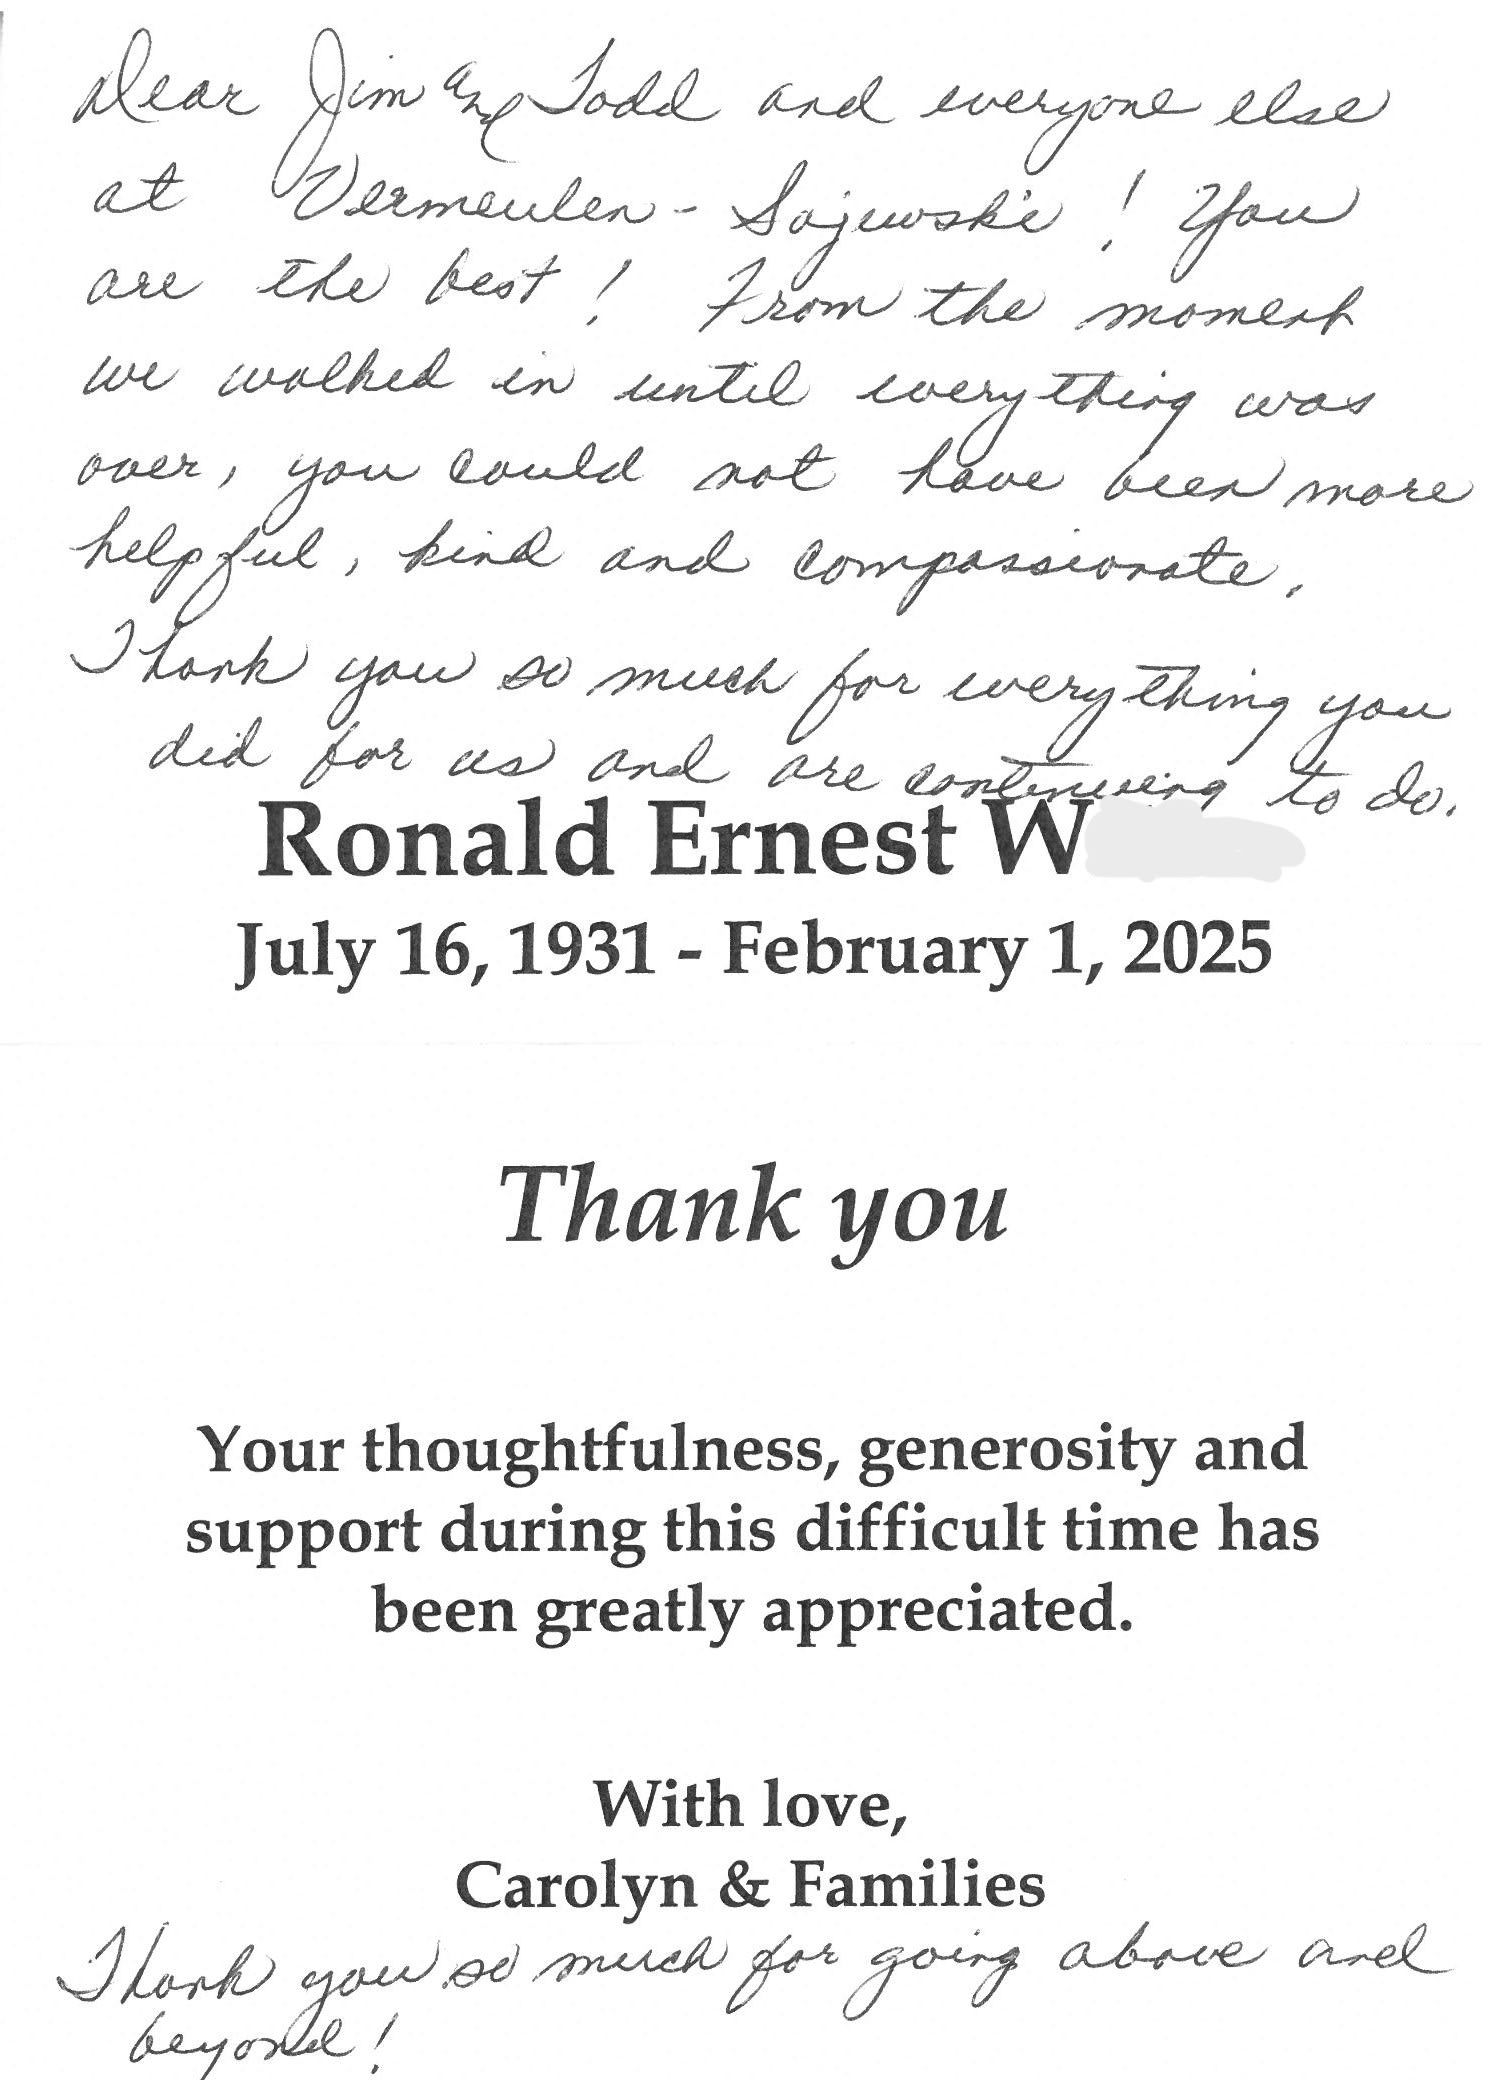 Dear Jim and Todd and everyone else
at Vermeulen - Sajewski! You
are the best! From the moment
we walked in until everything was
over, you could not have been more
helpful, kind and compassionate.
Thank you so much for everything you
did for us and are continuing to do.
Ronald Ernest W
July 16, 1931 - February 1, 2025
Thank you
Your thoughtfulness, generosity and
support during this difficult time has
been greatly appreciated.
With love,
Carolyn & Families
Thank you so much for going above and
beyond!